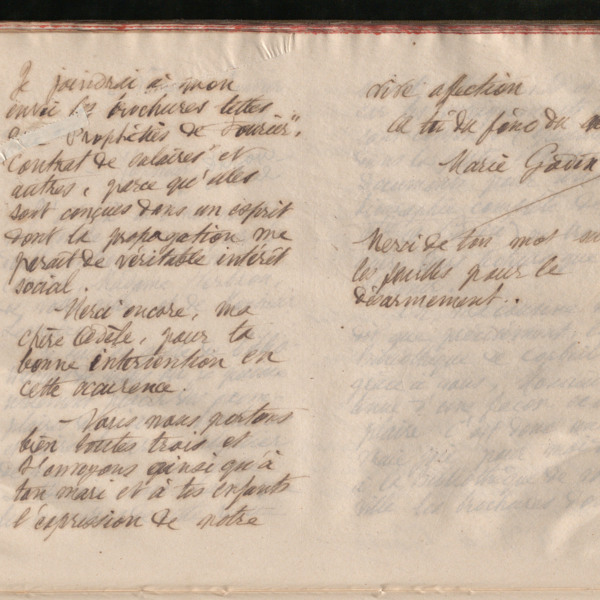 Je joindrai à mon
envoi les brochures telles
Prophéties de Fourier",
Contrat de salaires" et
autres, parce qu'elles
sont conçues dans un esprit
dont la propagation me
paraît de véritable intérêt
social.
- Merci encore, ma
chère Cécile, pour ta
bonne intervention en
cette occurence.
- Nous nous portons
bien toutes trois et
t'envoyons ainsi qu'à
ton mari et à tes enfants
l'expression de notre
vive affection
A toi du fond du
Marie Godin
Merci de ton mot
les feuilles pour le
désarmement..